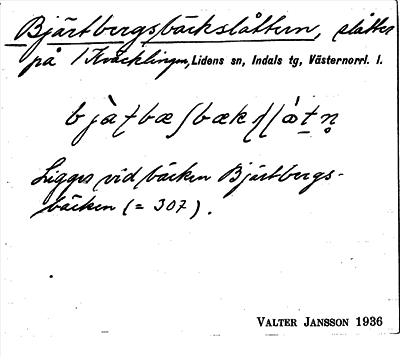 Bjärtbergsbäckslåttern, slåtter
på Kväcklingen, Lidens sn, Indals tg, Västernorrl. l.
Ligger vid bäcken Bjärtbergs-
bäcken (= 307).
VALTER JANSSON 1936